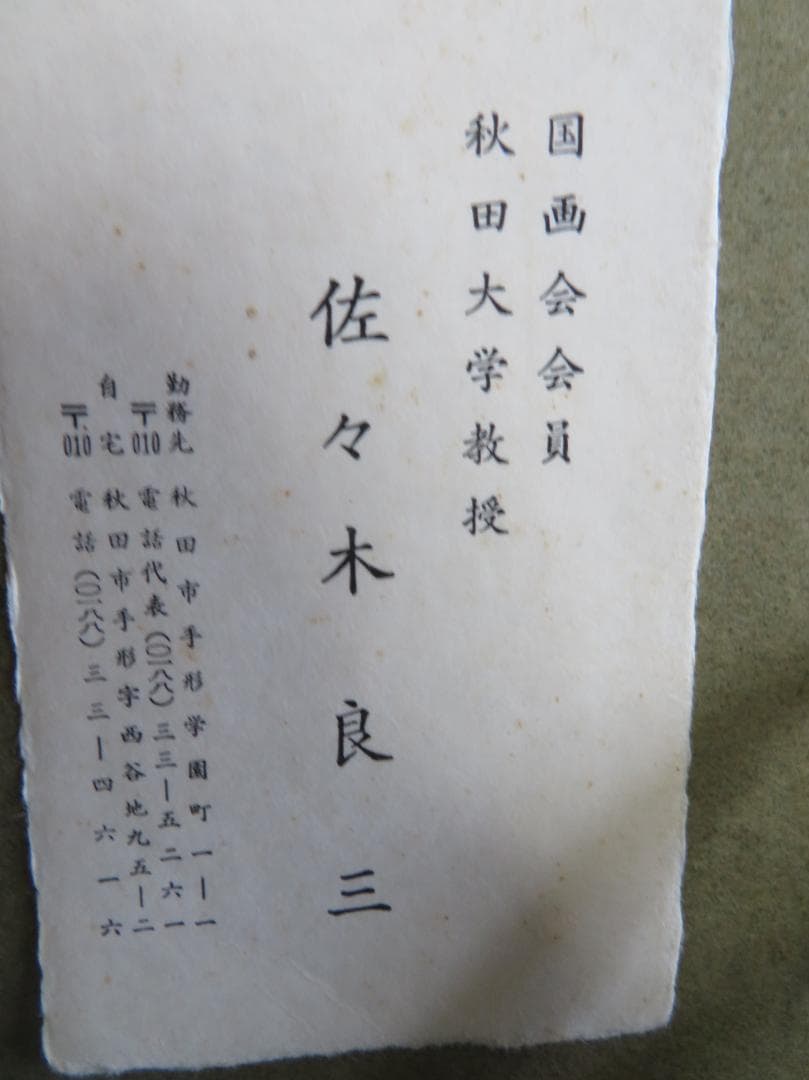 国画会会員
秋田大学教授
佐々木良三
勤務先 秋田市手形学園町一―一
〒010 電話代表(〇一八八)三三―五二六一
自宅 秋田市手形字西谷地九五―二
〒010 電話(〇一八八)三三―四六一六